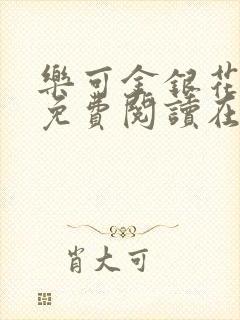 樂可金銀花
免費閱讀在
肖大可